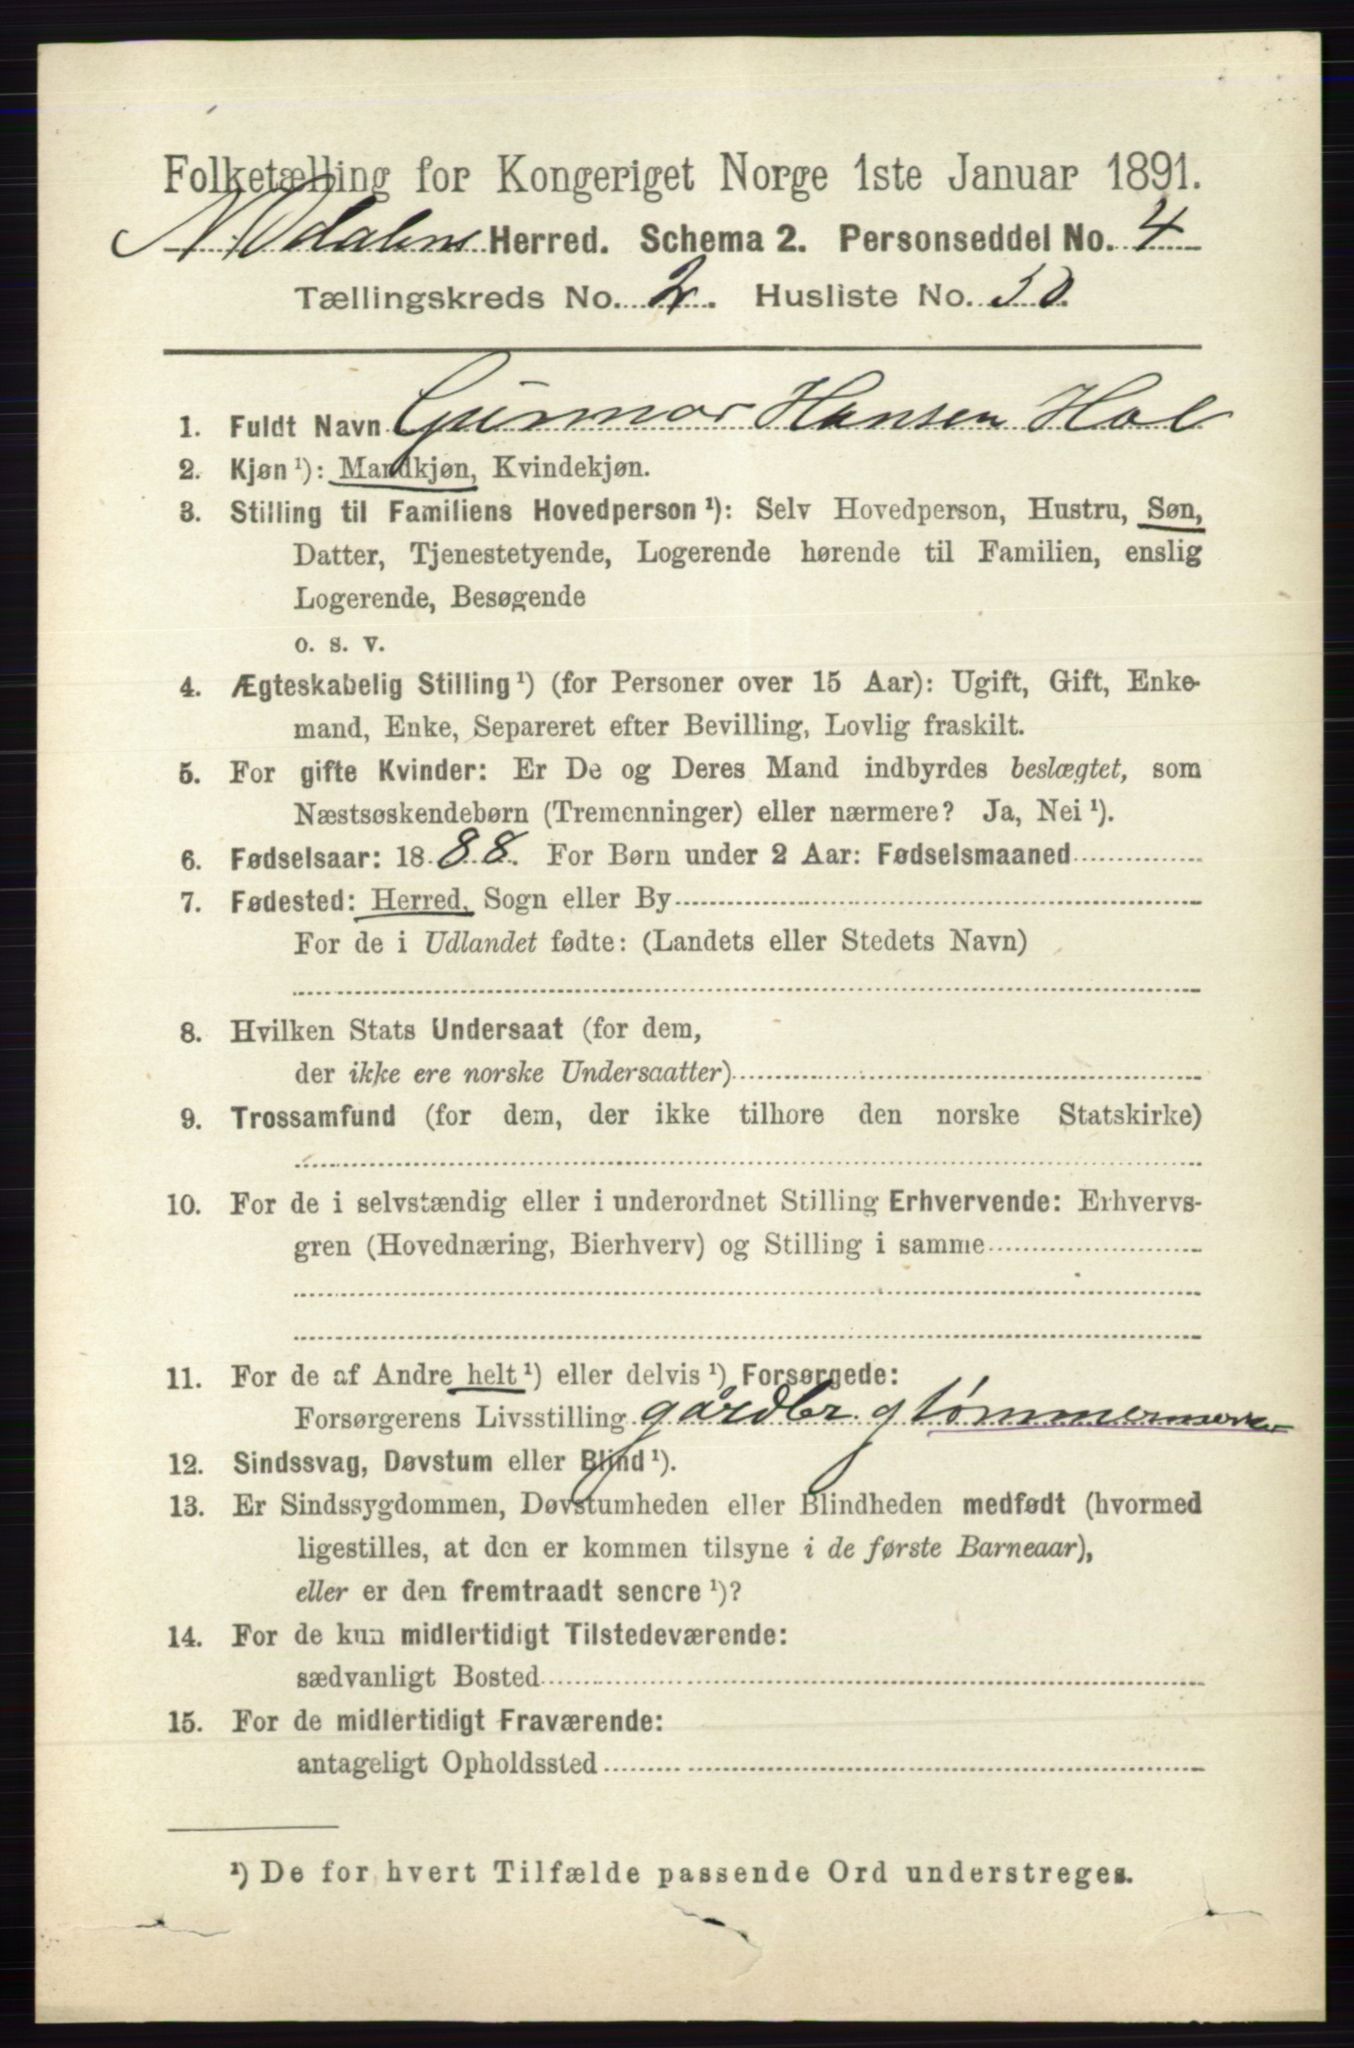 Folketælling for Kongeriget Norge 1ste Januar 1891.
N. Odalens Herred. Schema 2. Personseddel No. 4
Tællingskreds No. 2. Husliste No. 50.
1. Fuldt Navn Gunnar Hansen Hol
2. Kjøn ¹): Mandkjøn, Kvindekjøn.
3. Stilling til Familiens Hovedperson ¹): Selv Hovedperson, Hustru, Søn,
Datter, Tjenestetyende, Logerende hørende til Familien, enslig
Logerende, Besøgende
o. s. v.
4. Ægteskabelig Stilling ¹) (for Personer over 15 Aar): Ugift, Gift, Enke-
mand, Enke, Separeret efter Bevilling, Lovlig fraskilt.
5. For gifte Kvinder: Er De og Deres Mand indbyrdes beslægtet, som
Næstsøskendebørn (Tremenninger) eller nærmere? Ja, Nei ¹).
6. Fødselsaar: 1888. For Børn under 2 Aar: Fødselsmaaned
7. Fødested: Herred, Sogn eller By
For de i Udlandet fødte: (Landets eller Stedets Navn)
8. Hvilken Stats Undersaat (for dem,
der ikke ere norske Undersaatter)
9. Trossamfund (for dem, der ikke tilhøre den norske Statskirke)
10. For de i selvstændig eller i underordnet Stilling Erhvervende: Erhvervs-
gren (Hovednæring, Bierhverv) og Stilling i samme
11. For de af Andre helt ¹) eller delvis ¹) Forsørgede:
Forsørgerens Livsstilling gårdbr. og tømmermerker
12. Sindssvag, Døvstum eller Blind ¹).
13. Er Sindssygdommen, Døvstumheden eller Blindheden medfødt (hvormed
ligestilles, at den er kommen tilsyne i de første Barneaar),
eller er den fremtraadt senere ¹)?
14. For de kun midlertidigt Tilstedeværende:
sædvanligt Bosted
15. For de midlertidigt Fraværende:
antageligt Opholdssted
¹) De for hvert Tilfælde passende Ord understreges.